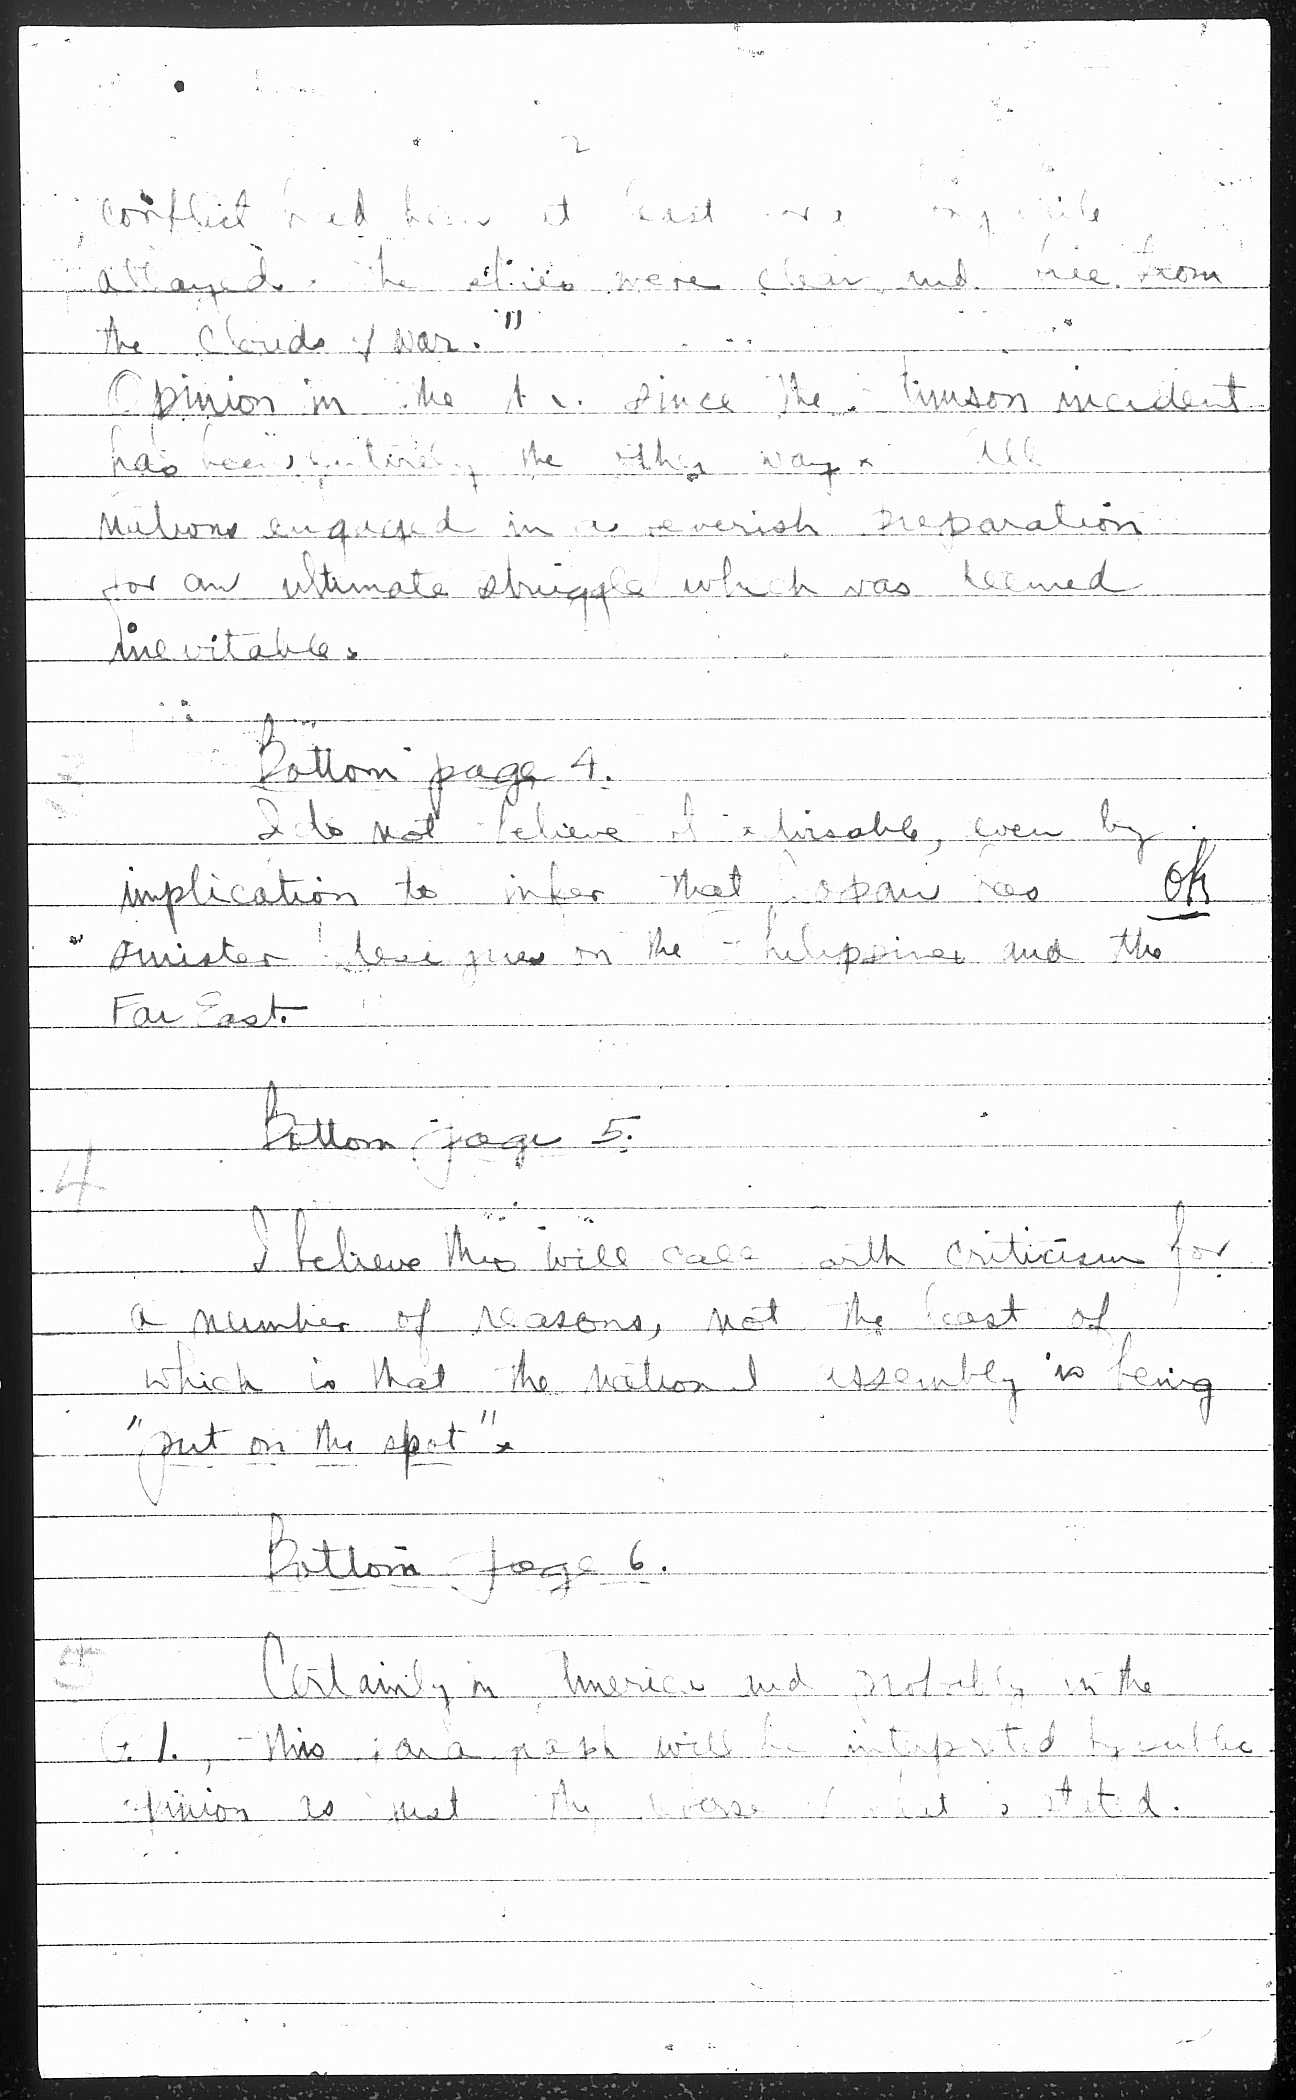 2
conflict had been at least for a long while
allayed. The skies were clear and free from
the clouds of war."
Opinion in the since the Stimson incident
has been entirely the other way. All
nations engaged in a feverish preparation
for an ultimate struggle which was deemed
inevitable.
Bottom page 4.
I do not believe it advisable, even by
implication to infer that Japan has OK
sinister designs on the Philippines and the
Far East.
Bottom page 5.
4
I believe this will call forth criticism for
a number of reasons, not the least of
which is that the National Assembly is being
"put on the spot".
Bottom page 6.
5
Certainly in America and probably in the
P.I., this paragraph will be interpreted by public
opinion as just the reverse of what is stated.